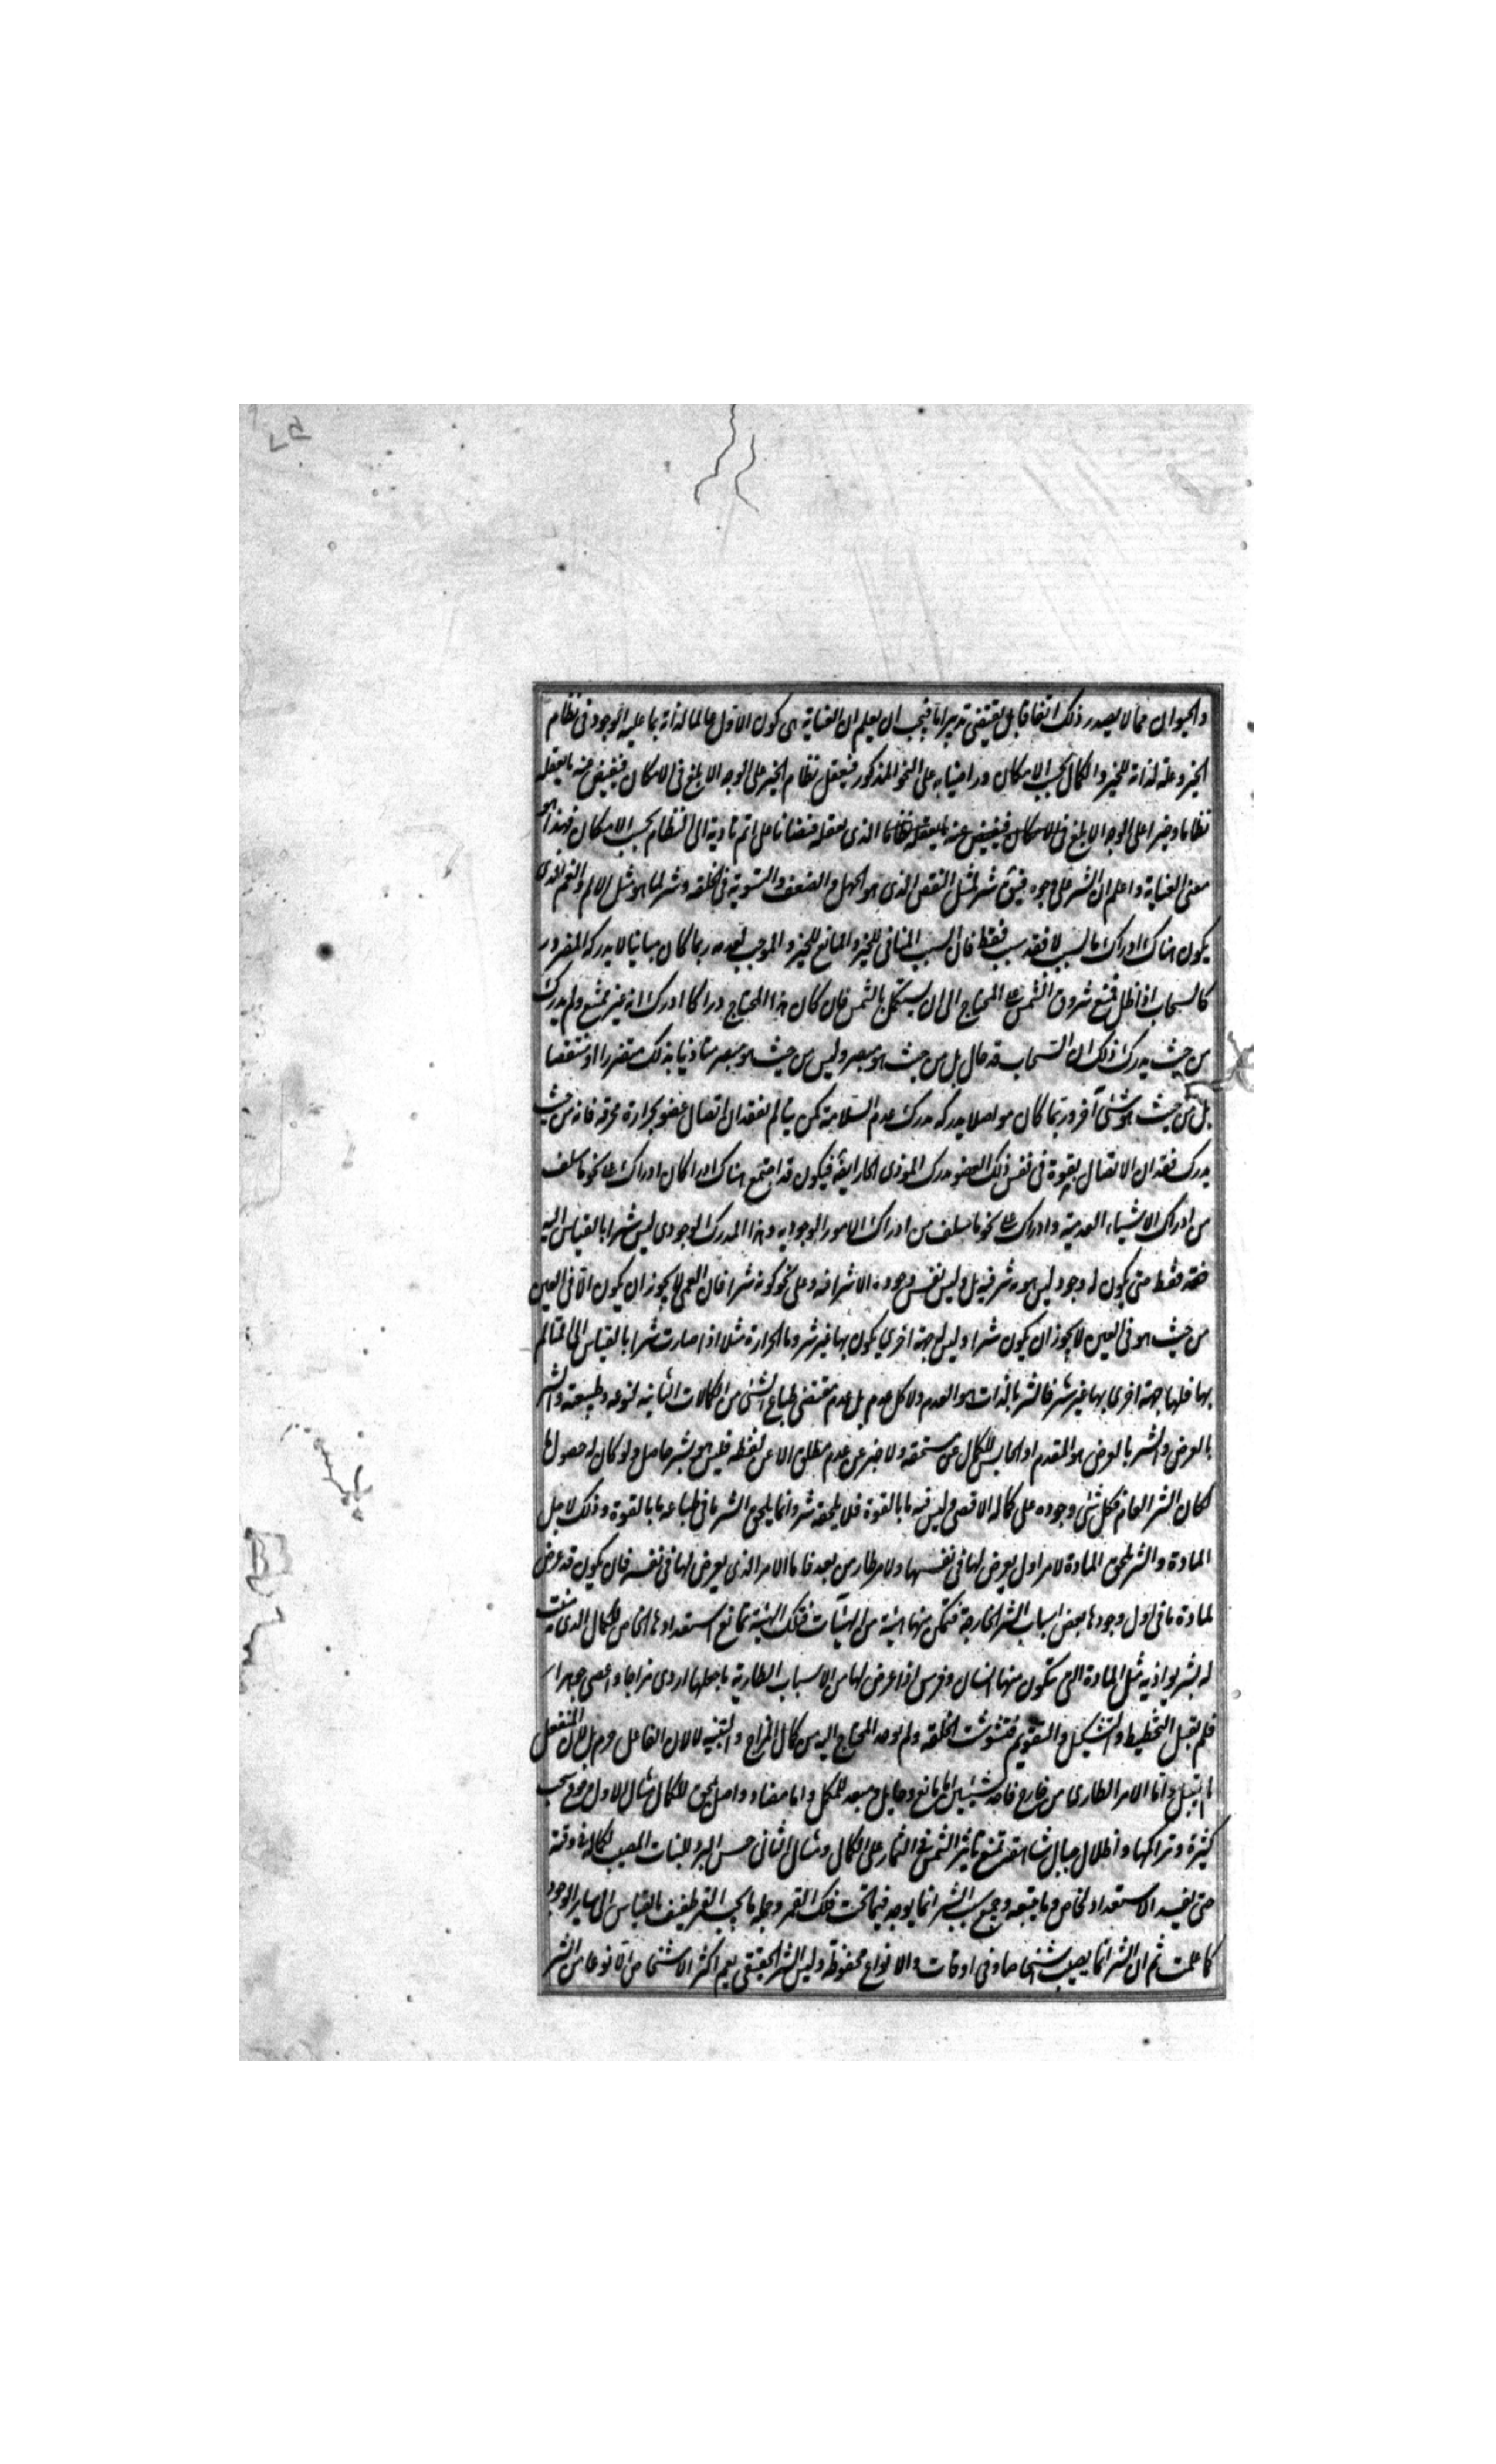 والحيوان مما لا يصدر ذلك اتفاقا بل يقتضي تدبيرا ما فيجب ان يعلم ان العناية هي كون الاول عالما لذاته بما عليه الوجود في نظام
الخير وعلة لذاته للخير والكمال بحسب الامكان وراضيا به على النحو المذكور فيعقل نظام الخير على الوجه الابلغ في الامكان فيفيض عنه ما يعقله
نظاما وخيرا على الوجه الابلغ في الامكان فيفيض عنه ما يعقله نظاما الذي يعقله فيضانا على اتم تادية الى النظام بحسب الامكان فهذا هو
معنى العناية واعلم ان الشر على وجوه فيق شر لمثل النقص الذي هو الجهل والضعف والتشويه في الخلقة وشر لما هو مثل الالم والغم الذي
يكون هناك ادراك ما لسبب لا فقد سبب فقط فان السبب المنافي للخير والمانع للخير والموجب لعدمه ربما كان مباينا لا يدركه المضرور
كالسحاب اذا ظلل فمنع شروق الشمس على المحتاج الى ان يستكمل بالشمس فان كان هذا المحتاج دراكا ادرك انه غير منتفع ولم يدرك
من حيث يدرك ذلك ان السحاب قد حال بل من حيث هو مبصر وليس من حيث هو مبصر متاذيا بذلك متضررا او منتقصا
بل من حيث هو شئ آخر وربما كان مواصلا يدركه مدرك عدم السلامة كمن يتالم بفقدان اتصال عضو بحرارة محرقة فانه من حيث
يدرك فقدان الاتصال بقوة في نفس ذلك العضو يدرك الموذي الحار ايضا فيكون قد اجتمع هناك ادراكان ادراك على نحو ما سلف
من ادراك الاشياء العدمية وادراك على نحو ما سلف من ادراك الامور الوجودية وهذا المدرك الوجودي ليس شرا بالقياس اليه
فقط حتى يكون له وجود ليس هو به شر فيه بل وليس نفس وجوده الا شرا فيه وعلى نحو كونه شرا فان العمى لا يجوز ان يكون الا في العين
من حيث هو في العين لا يجوز ان يكون شرا وليس له جهة اخرى يكون بها غير شر واما الحرارة مثلا اذا صارت شرا بالقياس الى المتالم
بها فلها جهة اخرى بها غير شر فالشر بالذات هو العدم ولا كل عدم بل عدم مقتضى طباع الشئ من الكمالات الثابتة لنوعه وطبيعته والشر
بالعرض والشر بالعرض هو المعدم او الحابس للكمال عن مستحقه ولا خبر عن عدم مطلق الا عن لفظه فليس هو بشر حاصل ولو كان له حصول ما
لكان الشر العام فكل شئ وجوده على كماله الاقصى وليس فيه ما بالقوة فلا يلحقه شر وانما يلحق الشر ما في طباعه ما بالقوة وذلك لاجل
المادة والشر يلحق المادة لامر اول يعرض لها في نفسها ولامر طار من بعد فاما الامر الذي يعرض لها في نفسه فان يكون قد عرض
لمادة ما في اول وجودها بعض اسباب الشر الخارجة فتمكن منها هيئة من الهيئات فتلك الهيئة تمانع استعدادها الخاص للكمال الذي منيت
له بشر يوازيه مثل المادة التي يتكون منها انسان وفرس اذا عرض لها من الاسباب الطارية ما جعلها اردى مزاجا واعصى جوهرا
فلم يقبل التخطيط والتشكيل والتقويم فتشوشت الخلقة ولم يوجد المحتاج اليه من كمال المزاج والبنية لا لان الفاعل حرم بل لان المنفعل
لم يقبل واما الامر الطاري من خارج فاحد شيئين اما مانع وحايل ومبعد للمكمل واما مضاد واصل ممحق للكمال مثال الاول وقوع سحب
كثيرة وتراكمها واظلال جبال شاهقة تمنع تاثير الشمس في الثمار على الكمال ومثال الثاني حبس البرد للنبات المصيب لكماله في وقته
حتى يفسد الاستعداد الخاص وما يتبعه وجميع سبب الشر انما يوجد فيما تحت فلك القمر وجملة ما تحت القمر طفيف بالقياس الى ساير الوجود
كما علمت ثم ان الشر انما يصيب اشخاصا وفي اوقات والانواع محفوظة وليس الشر الحقيقي يعم اكثر الاشخاص الا نوعا من الشر